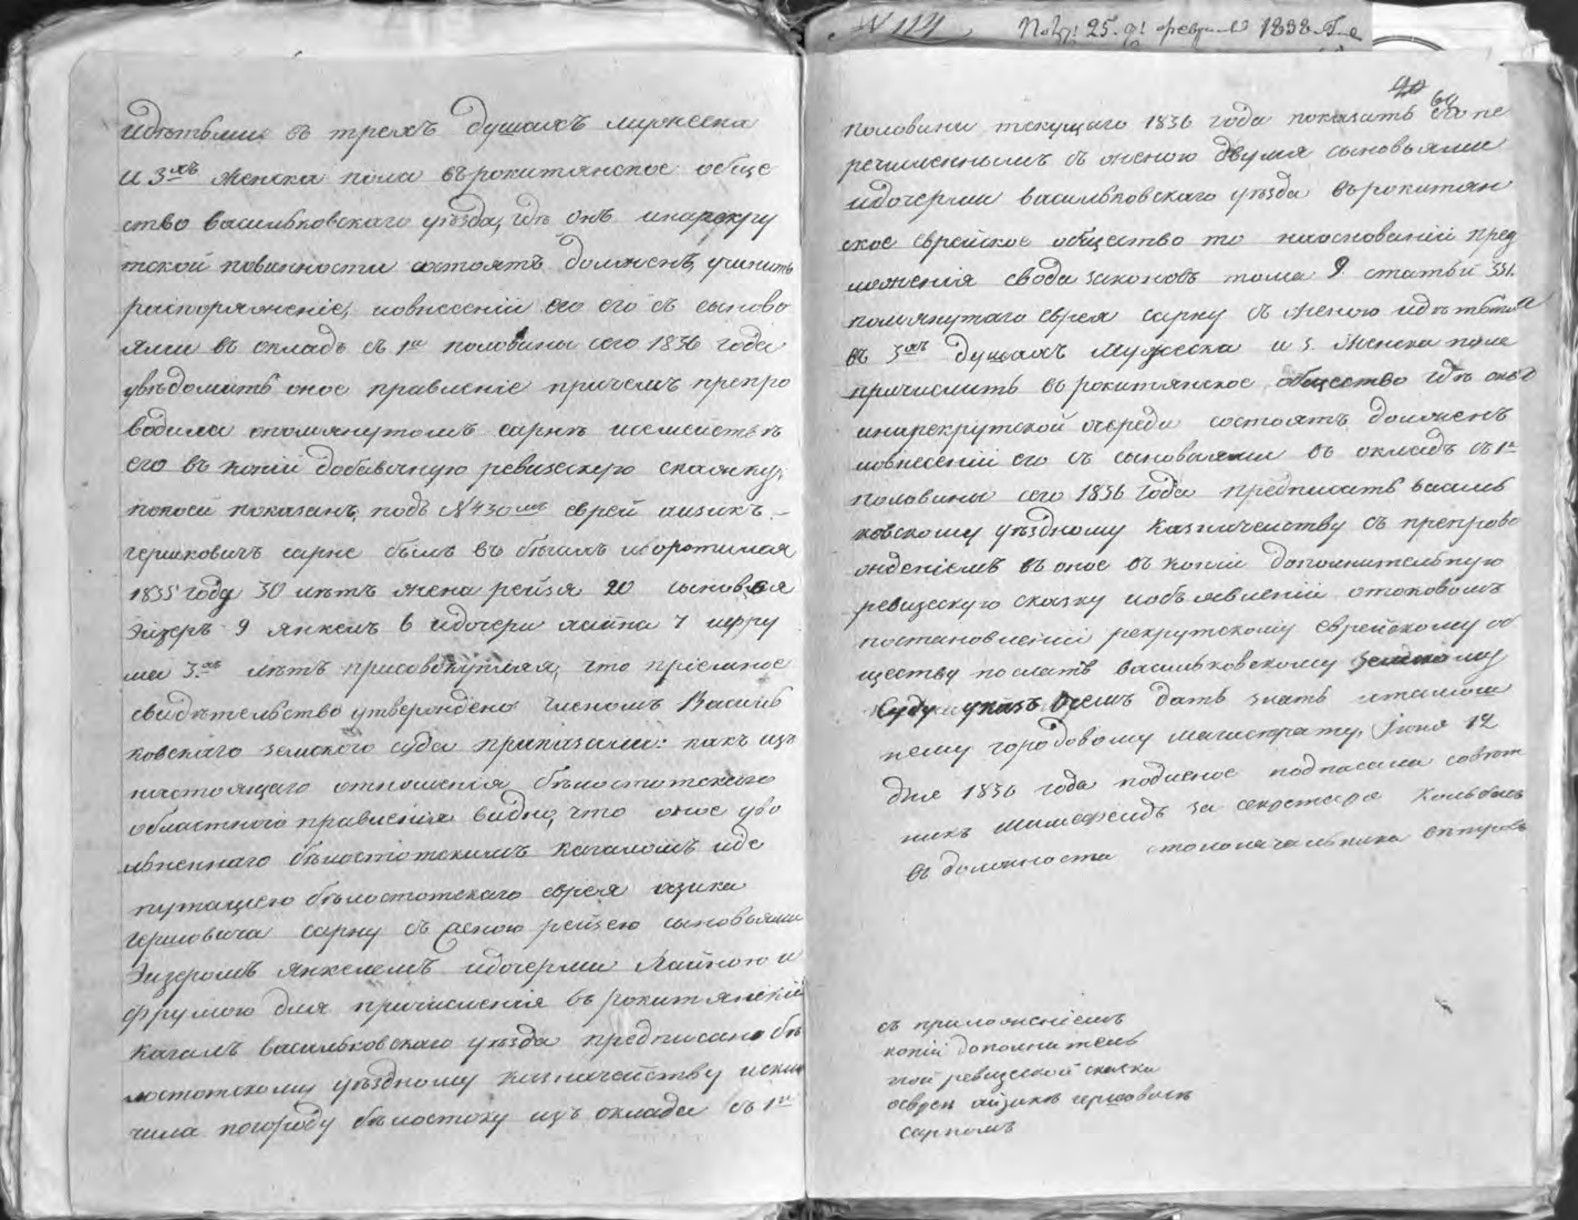 идѣтьми въ трехъ душахъ мужеска
и 3хъ женска пола въ рокитянское обще
ство васильковскаго уѣзда, гдѣ онъ инарекру
тской повинности состоять долженъ, учинить
распоряженіе, иовнесеніи его съ сыново
ями въ окладъ съ 1й половины сего 1836 года
увѣдомить оное правленіе причемъ препро
водила опомянутомъ сарнѣ исемействѣ
его въ копіи добавочную ревизскую скаску,
покоей показанъ подъ №430мъ еврей аизикъ
гершковичъ сарне былъ въ бѣгахъ иворотился
1835 году 30 лѣтъ жена рейзя 20 сыновья
Эйзеръ 9 Янкель 6 идочери хайна 7 ифру
ма 3хъ лѣтъ присовокупляя, что пріемное
свидѣтельство утверждено членомъ Василь
ковскаго земскаго суда приказали: какъ изъ
настоящаго отношенія бѣлостотскаго
областного правленія видно, что оное уво
льненнаго бѣлостотскимъ кагаломъ иде
путацiею бѣлостотскаго еврея аизика
гершовича сарну съ женою рейзею сыновьями
Эизеромъ янкелемъ идочерми Хайною и
фрумою для причисленія въ рокитянскій
кагалъ васильковскаго уѣзда предписано бѣ
лостотскому уѣздному казначейству исклю
чила погороду бѣлостоку изъ оклада съ 1й
N 114 Полу: 25. д: февраля 1838 Го
60
половины текущаго 1836 года показать его пе
речисленнымъ съ женою двумя сыновьями
идочерми васильковскаго уѣзда въ рокитян
ское еврейское общество то наоснованіи пред
ложенія свода законовъ тома 9 статьи 331.
помянутаго еврея сарну съ женою идѣтьми
въ 3хъ душахъ мужеска и 3. женска пола
причислить въ рокитянское общество гдѣ онъ
инарекрутской очереди состоять долженъ
иовнесеніи его съ сыновьями въ окладъ съ 1й
половины сего 1836 года предписать василь
ковскому уѣздному казначейству съ препрово
жденіемъ въ оное въ копіи дополнительную
ревизскую скаску иобъявленіи отоковомъ
постановленіи рекрутскому еврейскому об
ществу послать васильковскому земскому
суду указъ очемъ дать знать итамош
нему городовому магистрату, Іюня 12
дня 1836 года подленое подписали совѣт
никъ за секретаря
въ должности столоначальника
съ приложеніемъ
копіи дополнитель
ной ревизской скаски
оеврея айзикѣ гершовичѣ
сарномъ